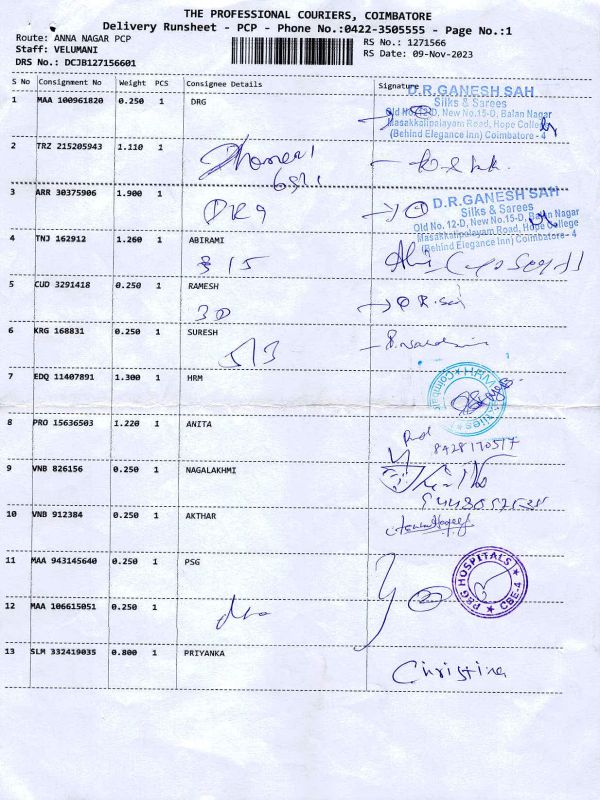 THE PROFESSIONAL COURIERS, COIMBATORE
Delivery Runsheet - PCP - Phone No.:0422-3505555 - Page No.:1
Route: ANNA NAGAR PCP
Staff: VELUMANI
DRS No.: DCJB127156601
RS No.: 1271566
RS Date: 09-Nov-2023
S No Consignment No Weight PCS Consignee Details Signature
1 MAA 100961820 0.250 1 DRG
D.R.GANESH SAH
Silks & Sarees
Old No.12-D, New No.15-D, Balan Nagar
Masakkalipalayam Road, Hope College
(Behind Elegance Inn) Coimbatore - 4
2 TRZ 215205943 1.110 1
3 ARR 30375906 1.900 1
DRG
D.R.GANESH SAH
Silks & Sarees
Old No. 12-D, New No.15-D, Balan Nagar
Masakkalipalayam Road, Hope College
(Behind Elegance Inn) Coimbatore - 4
4 TNJ 162912 1.260 1 ABIRAMI
315
5 CUD 3291418 0.250 1 RAMESH
30
6 KRG 168831 0.250 1 SURESH
513
7 EDQ 11407891 1.300 1 HRM
HRM
8 PRO 15636503 1.220 1 ANITA
8428170517
9 VNB 826156 0.250 1 NAGALAKHMI
10 VNB 912384 0.250 1 AKTHAR
11 MAA 943145640 0.250 1 PSG
PSG HOSPITALS
CBE-4
12 MAA 106615051 0.250 1
13 SLM 332419035 0.800 1 PRIYANKA
Christina